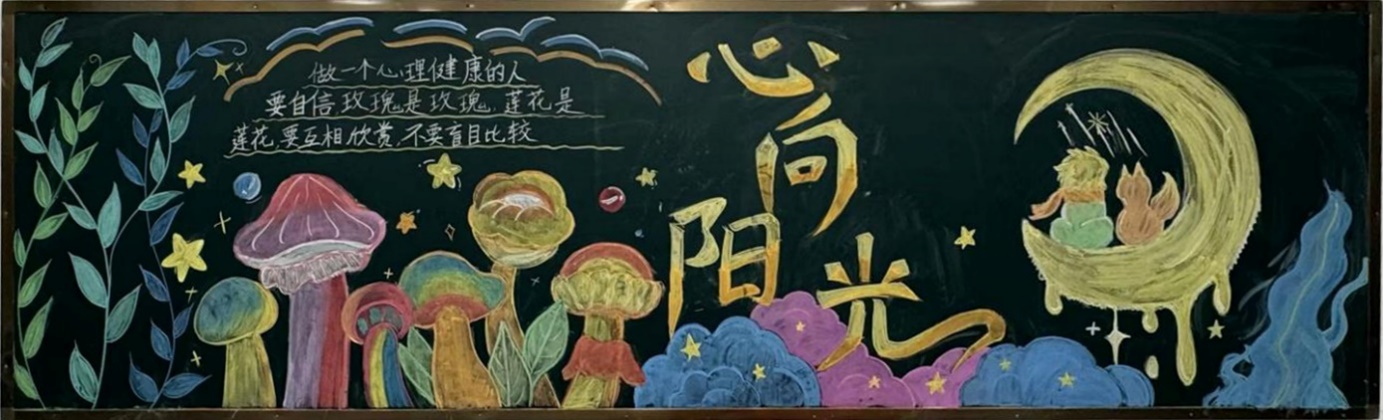 做一个心理健康的人
要自信,玫瑰是玫瑰,莲花是
莲花,要互相欣赏,不要盲目比较
心向
阳光